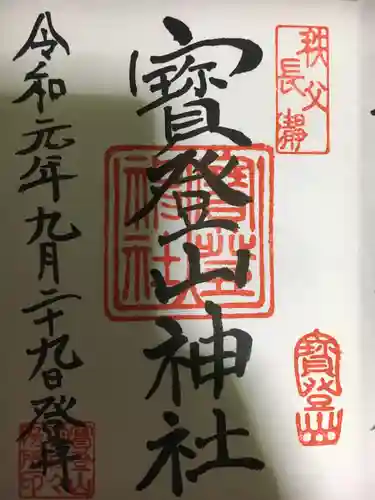 秩父
長瀞
寳登山神社
寳登山
神社
寳登山
令和元年九月二十九日登拝